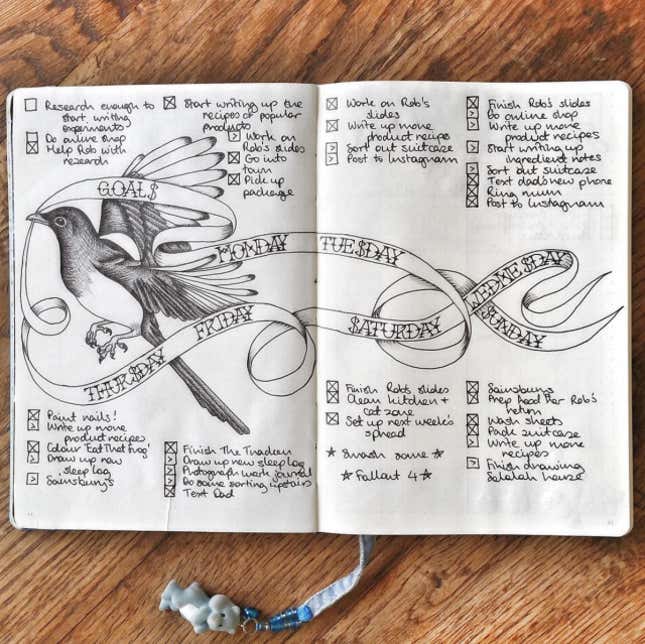 Research enough to
start writing
experiments
Do online shop
Help Rob with
research
GOALS
Start writing up the
recipes of popular
products
Work on
Rob's slides
Go into
town
Pick up
package
MONDAY
Work on Rob's
slides
Write up more
product recipes
Sort out suitcase
Post to Instagram
TUESDAY
Finish Rob's slides
Do online shop
Write up more
product recipes
Start writing up
ingredient notes
Sort out suitcase
Text dad's new phone
Ring mum
Post to Instagram
WEDNESDAY
THURSDAY
Paint nails!
Write up more
product recipes
Colour 'Eat That Frog'
Draw up new
sleep log
Sainsbury's
FRIDAY
Finish The
Draw up new sleep log
Photograph work journal
Do some sorting upstairs
Text Dad
SATURDAY
Finish Rob's slides
Clean kitchen +
cat zone
Set up next week's
spread
★ Smash some ★
★ Fallout 4 ★
SUNDAY
Sainsburys
Prep food for Rob's
return
Wash sheets
Pack suitcase
Write up more
recipes
Finish drawing
house